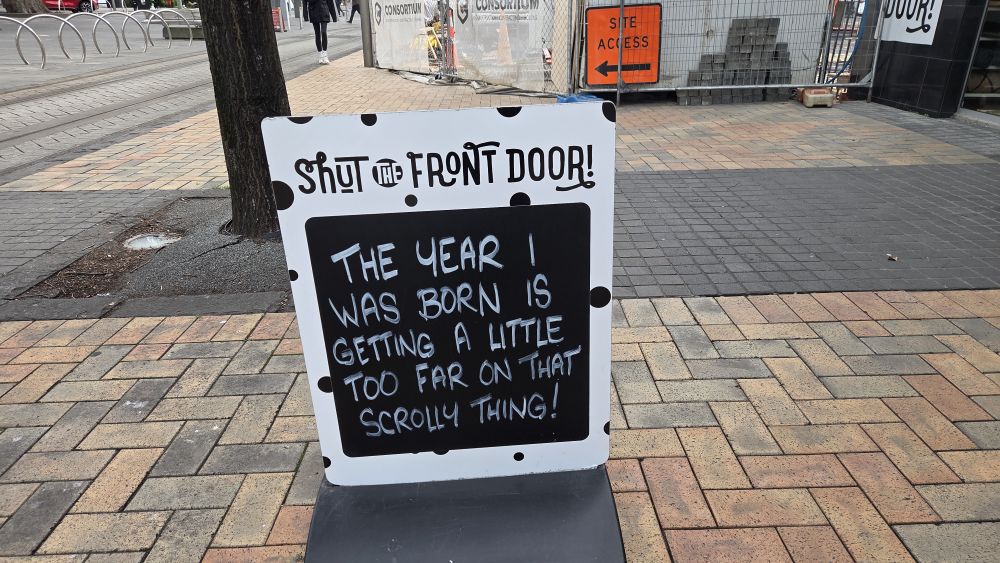 CONSORTIUM
CONSORTIUM
SITE
ACCESS
DOOR!
Shut THE FRONT DOOR!
THE YEAR I
WAS BORN IS
GETTING A LITTLE
TOO FAR ON THAT
SCROLLY THING!